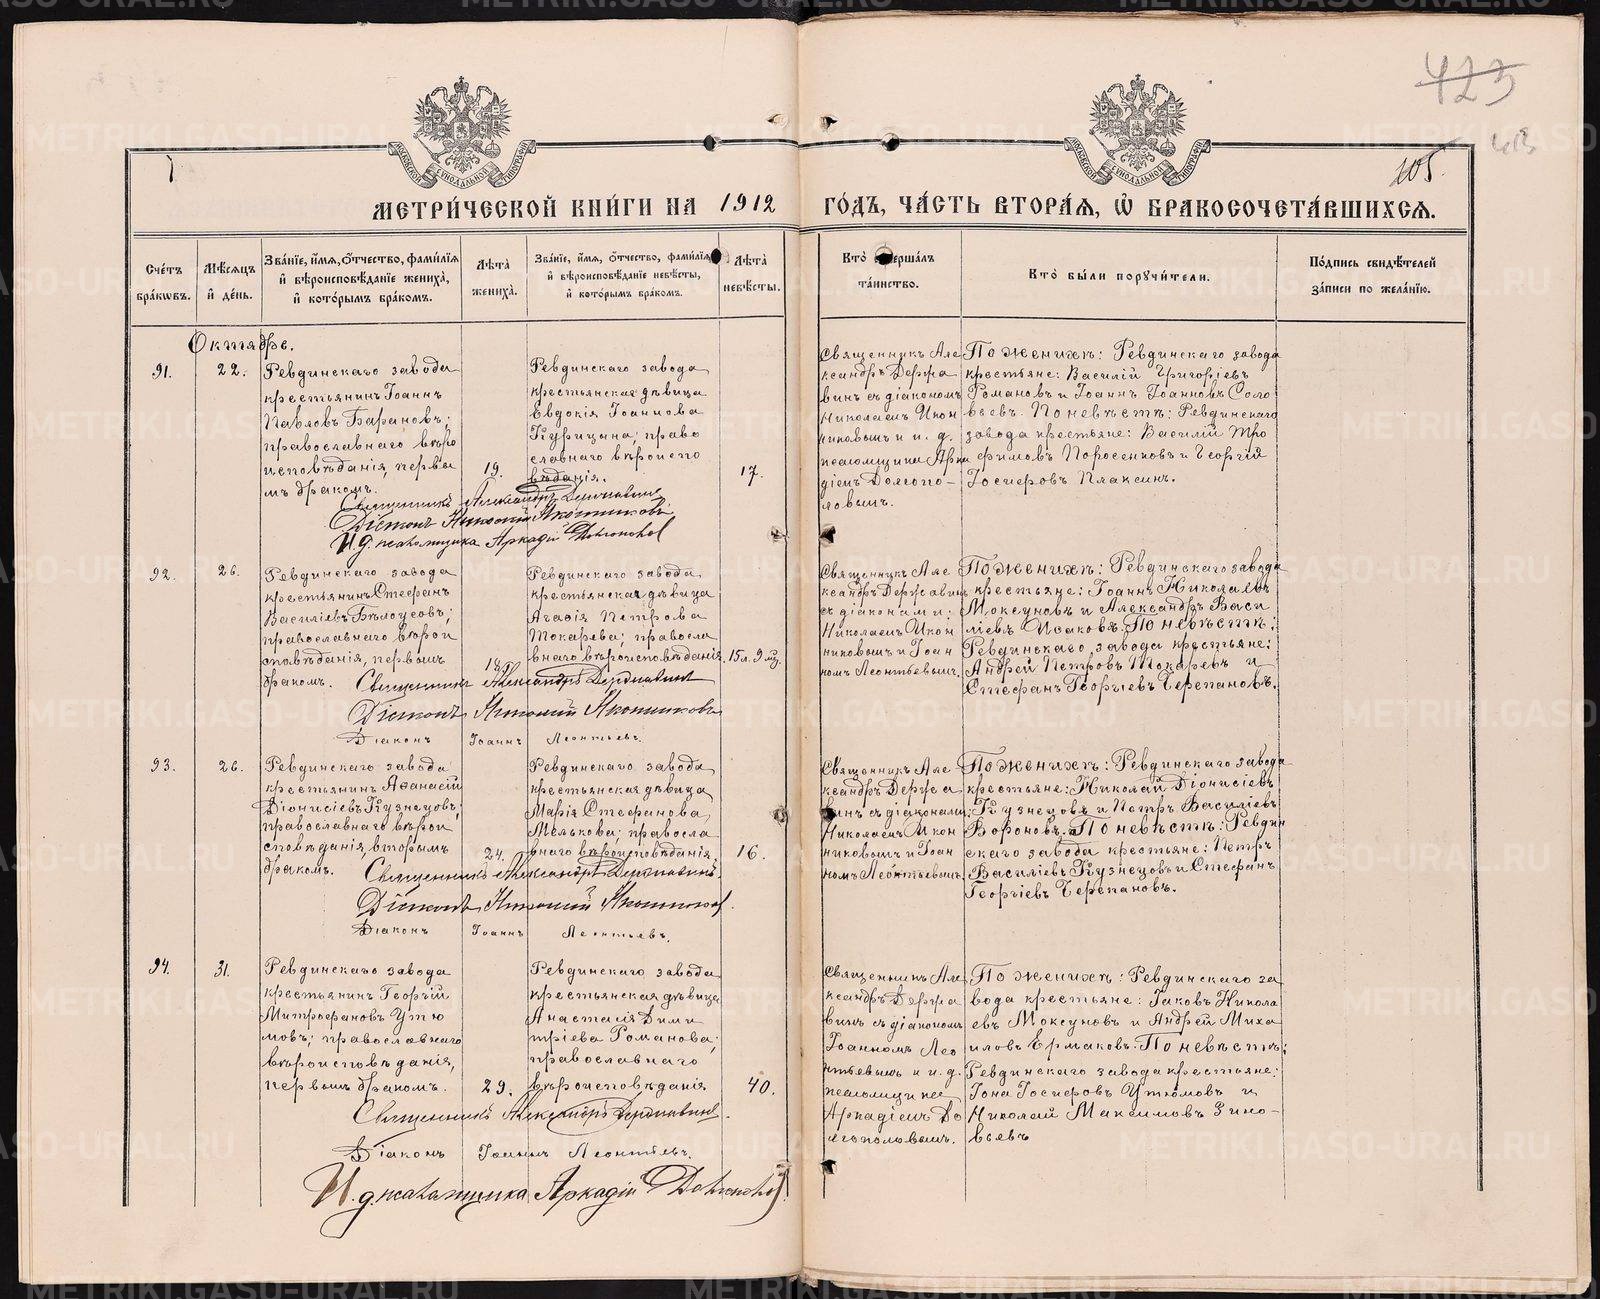 423
413
105.
МЕТРИ́ЧЕСКОЙ КНИ́ГИ НА 1912 ГО́ДЪ, ЧА́СТЬ ВТОРА́Я, Ѡ БРАКОСОЧЕТА́ВШИХСЯ.
Сче́тъ бра́кѡвъ.
Мѣ́сяцъ и́ де́нь.
Зва́нїе, и́мя, о́тчество, фами́лїя и́ вѣроисповѣ́данїе жениха̀, и́ кото́рымъ бра́комъ.
Лѣ́та жениха̀.
Зва́нїе, и́мя, о́тчество, фами́лїя и́ вѣроисповѣ́данїе невѣ́сты, и́ кото́рымъ бра́комъ.
Лѣ́та невѣ́сты.
Кто̀ соверша́лъ та́инство.
Кто̀ бы́ли поручи́тели.
По́дпись свидѣ́телей за́писи по жела́нїю.
Октябрь.
91.
22.
Ревдинскаго завода
крестьянинъ Іоаннъ
Павловъ Барановъ;
православнаго вѣро
исповѣданія, первы
мъ бракомъ.
19.
Ревдинскаго завода
крестьянская дѣвица
Евдокія Іоаннова
Курицына; право
славнаго вѣроиспо
вѣданія.
17.
Священникъ Але
ксандръ Держа
винъ съ діакономъ
Николаемъ Икон
никовымъ и и. д.
псаломщика Арка
діемъ Долгопо-
ловымъ.
По женихѣ: Ревдинскаго завода
крестьяне: Василій Григоріевъ
Романовъ и Іоаннъ Іоанновъ Соло
вьевъ. По невѣстѣ: Ревдинскаго
завода крестьяне: Василій Тро
фимовъ Поросенковъ и Георгій
Іосифовъ Плаксинъ.
Священникъ Александръ Державинъ
Діаконъ Николай Иконниковъ
И. д. псаломщика Аркадій Долгополов
92.
26.
Ревдинскаго завода
крестьянинъ Стефанъ
Василіевъ Бѣлоусовъ;
православнаго вѣрои
сповѣданія, первымъ
бракомъ.
18.
Ревдинскаго завода
крестьянская дѣвица
Агафія Петрова
Токарева; правосла
внаго вѣроисповѣданія.
15 л. 9 м.
Священникъ Але
ксандръ Державинъ
съ діаконами:
Николаемъ Икон
никовымъ и Іоан
номъ Леонтьевымъ.
По женихѣ: Ревдинскаго завода
крестьяне: Іоаннъ Николаевъ
Моксуновъ и Александръ Васи
ліевъ Исаковъ. По невѣстѣ:
Ревдинскаго завода крестьяне:
Андрей Петровъ Токаревъ и
Стефанъ Георгіевъ Черепановъ.
Священникъ Александръ Державинъ
Діаконъ Николай Иконниковъ
Діаконъ Іоаннъ Леонтьевъ.
93.
26.
Ревдинскаго завода
крестьянинъ Аѳанасій
Діонисіевъ Кузнецовъ;
православнаго вѣрои
сповѣданія, вторымъ
бракомъ.
24.
Ревдинскаго завода
крестьянская дѣвица
Марія Стефанова
Мелькова; правосла
внаго вѣроисповѣданія.
16.
Священникъ Але
ксандръ Держа
винъ съ діаконами:
Николаемъ Икон
никовымъ и Іоан
номъ Леонтьевымъ.
По женихѣ: Ревдинскаго завода
крестьяне: Николай Діонисіевъ
Кузнецовъ и Петръ Василіевъ
Вороновъ. По невѣстѣ: Ревдин
скаго завода крестьяне: Петръ
Василіевъ Кузнецовъ и Стефанъ
Георгіевъ Черепановъ.
Священникъ Александръ Державинъ
Діаконъ Николай Иконников
Діаконъ Іоаннъ Леонтьевъ.
94.
31.
Ревдинскаго завода
крестьянинъ Георгій
Митрофановъ Утю
мовъ; православнаго
вѣроисповѣданія,
первымъ бракомъ.
29.
Ревдинскаго завода
крестьянская дѣвица
Анастасія Дими
тріева Романова;
православнаго
вѣроисповѣданія
40.
Священникъ Але
ксандръ Держа
винъ съ діакономъ
Іоанномъ Лео
нтьевымъ и и. д.
псаломщика
Аркадіемъ До
лгополовымъ.
По женихѣ: Ревдинскаго за
вода крестьяне: Іаковъ Никола
евъ Моксуновъ и Андрей Миха
иловъ Ермаковъ. По невѣстѣ:
Ревдинскаго завода крестьяне:
Іона Іосифовъ Утюмовъ и
Николай Максимовъ Зино-
вьевъ
Священникъ Александръ Державинъ
Діаконъ Іоаннъ Леонтьевъ.
И. д. псаломщика Аркадій Долгополов
METRIKI.GASO-URAL.RU